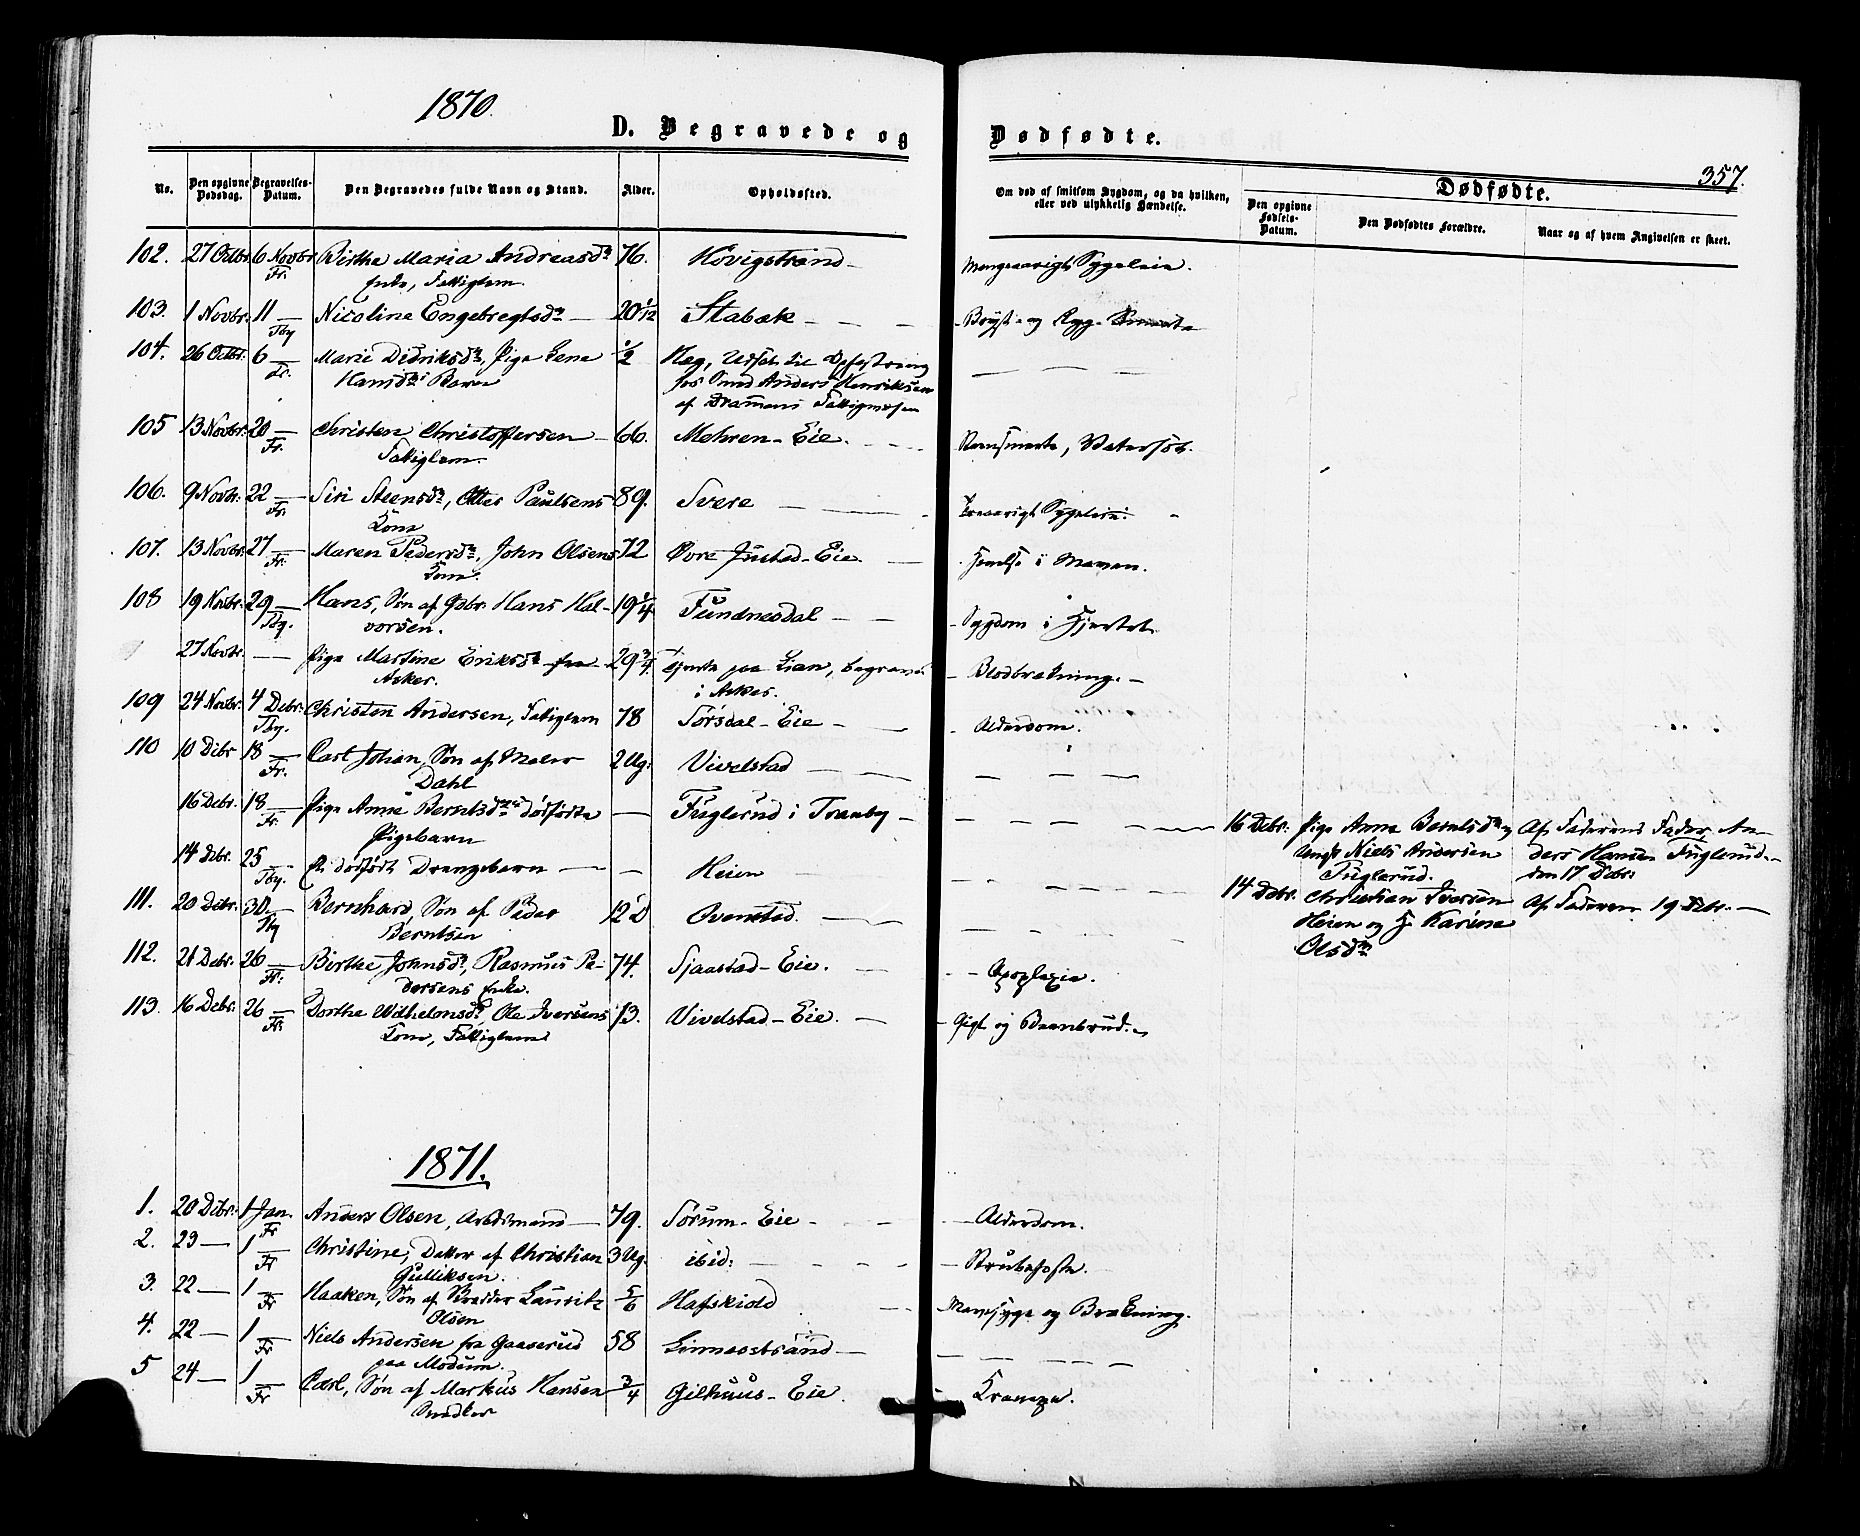 1870.
D. Begravede og
Dødfødte.
357.
No.
Den opgivne Dødsdag.
Begravelses-Datum.
Den Begravedes fulde Navn og Stand.
Alder.
Opholdssted.
Om død af smitsom Sygdom, og da hvilken, eller ved ulykkelig Hændelse.
Dødfødte.
Den opgivne Fødsels-Datum.
Den Dødfødtes Forældre.
Naar og af hvem Angivelsen er skeet.
102. 27 Octbr 6 Novbr Birthe Maria Andreasdr 76. Høvigstrand Mangeaarigt Sygeleie.
Fr. Enke, Fattiglem.
103. 1 Novbr. 11 — Nicoline Engebregtsdr — 20 1/12 Stabæk — Bryst- og Ryg-
Tby
104. 26 Octbr. 6 — Marie Didriksdr, Pige Lene 1/2 Hæg, Udsat til Opfostring
Fr. Hansdrs Barn for Smed Anders Henriksen
af Drammens Fattigvæsen
105 13 Novbr. 20 — Christen Christoffersen — 66. Mehren-Eie. Vatersot.
Fr. Fattiglem.
106. 9 Novbr. 22 — Siri Steensdr, Otter Paulsens 89. Svere — Sygeleie.
Fr. Kone
107. 13 Novbr. 27 — Maren Pedersdr, John Olsens 72 Øvre Justad-Eie. i Maven.
Fr. Kone.
108 19 Novbr. 29 — Hans, Søn af Gbr. Hans Hal- 19 1/4 Tundnesdal — Sygdom i Hjertet.
Tby. vorsen.
27 Novbr. — Pige Martine Eriksdr fra 29 3/4 tjente paa Lian, begravet Blodbrækning. —
Asker. i Asker.
109 24 Novbr. 4 Debr. Christen Andersen, Fattiglem 78 Sørsdal-Eie — Alderdom.
Tby.
110 10 Debr 18 — Carl Johan, Søn af Maler 2 Ug. Vivelstad —
Fr. Dahl
16 Debr. 18 — Pige Anne Berntsdrs dødfødte — Fuglerud i Tranby — 16 Debr. Pige Anne Berntsdr og Af Faderens Fader, An-
Fr. Pigebarn Ungk. Niels Andersen ders Hansen Fuglerud.
Fuglerud. den 17 Debr.
14 Debr. 25 — Et dødfødt Drengebarn — Heien — 14 Debr. Christian Iversen Af Faderen 19 Debr. —
Tby. Heien og H. Karine
Olsdr
111. 20 Debr. 30 — Bernhard, Søn af Peder 12 D Ovenstad. —
Tby Berntsen
112. 21 Debr. 26 — Birthe Johnsdr, Rasmus Pe- 74. Sjaastad-Eie. — Apoplexie.
Fr. dersens Enke.
113. 16 Debr. 26 — Dorthe Wilhelmsdr Ole Iversens 73. Vivelstad-Eie. — Gigt og Beenbrud.
Fr. Kone, Fattiglem
1871.
1. 20 Debr. 1 Jan. Anders Olsen, Arbdsmand — 79. Sørum-Eie — Alderdom.
Fr
2. 23 — 1 — Christine, Datter af Christian 3 Ug. ibid: — Strubehoste.
Fr Gulliksen.
3. 22 — 1 — Haaken, Søn af Lauritz 5/6 Hafskjold — Mavesyge og Brækning.
Fr Olsen
4. 22 — 1 — Niels Andersen fra Gaaserud 58 Linnesstrand —
Fr paa Modum.
5 24 — 1 — Carl, Søn af Markus Hansen 3/4 Gilhuus-Eie. Krampe.
Fr Snedker